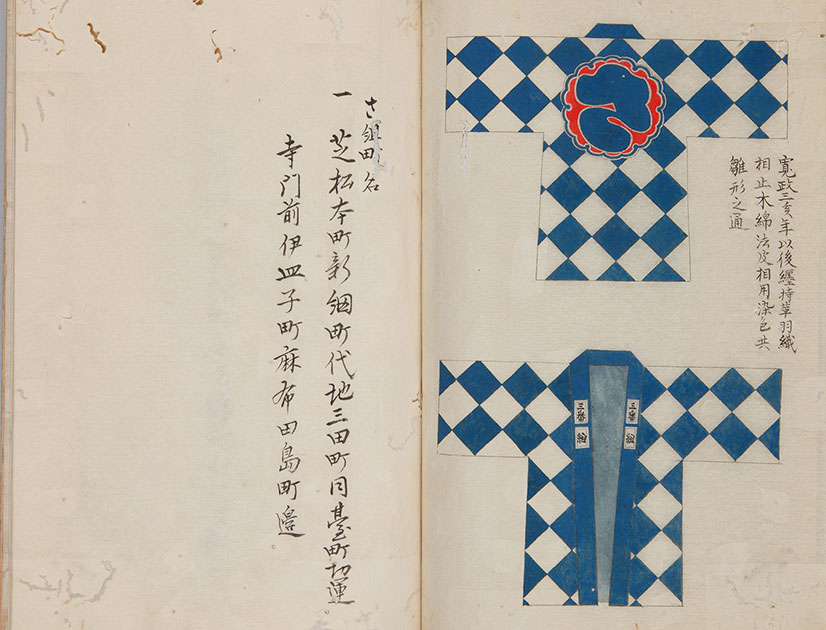 寛政三亥年以後纏持革羽織
相止木綿法皮相用染色共
雛形之通
三番
組
三番
組
さ組田名
一 芝松本町新網町代地三田町同臺町功運
寺門前伊皿子町麻布田島町邉